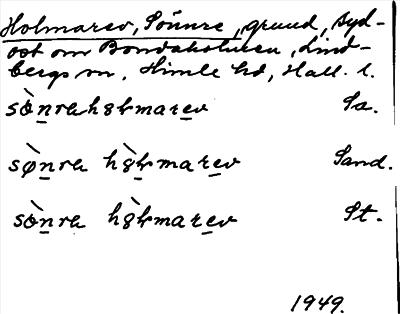 Holmarev, Sönnre, grund, syd-
ost om Bondaholmen, Lind-
bergs sn, Himle hd, Hall. l.
sònrahålmarev Sa.
sø̀nra hòlmarev Sand.
sònra hålmarev St.
1949.